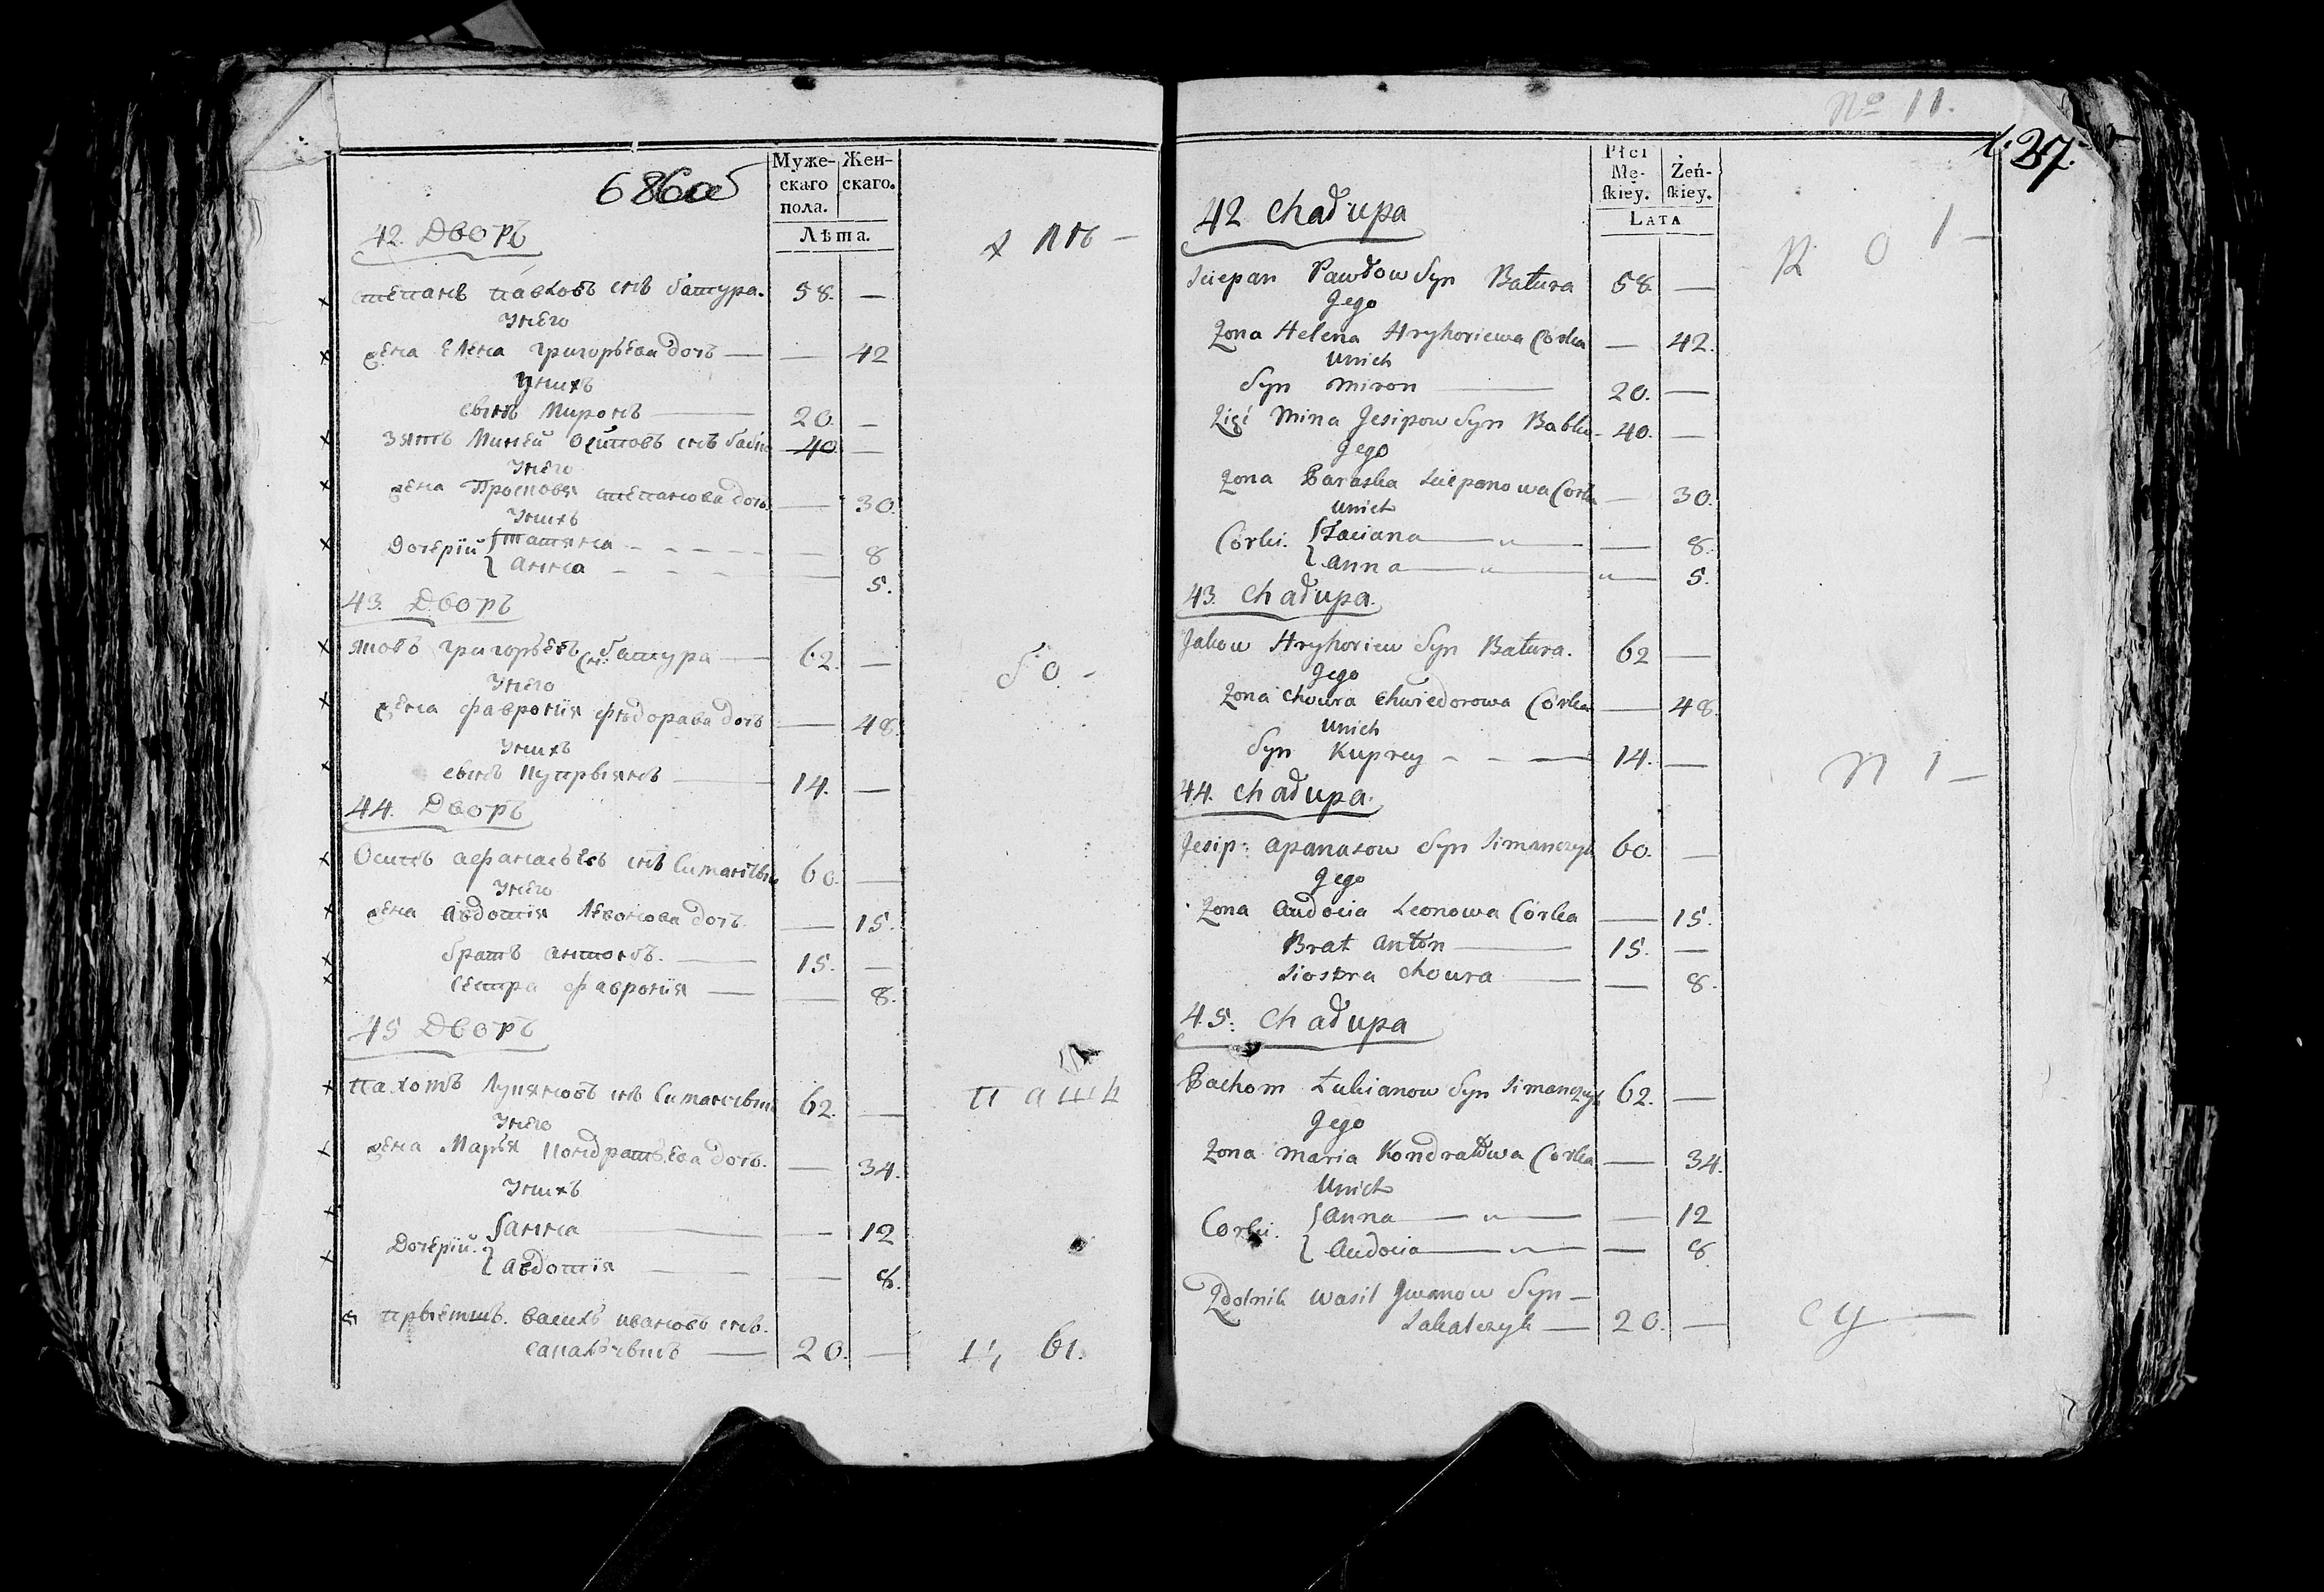 686об
Муже-
скаго
пола.
Жен-
скаго.
Лѣта.
42. Дворъ
степанъ павловъ снъ батура. 58. —
унего
жена елена григорьева дочь — — 42
унихъ
сынъ Миронъ — 20. —
зять Миней осиповъ снъ 40 —
унего
жена Просковя степанова дочь. — 30.
унихъ
дочерїи татяна — 8
анна — 5.
43. Дворъ
яковъ григорьевъ сн. батура — 62. —
унего
жена февронїя фѣдорава дочь — 48.
унихъ
сынъ купрыянъ — 14. —
44. Дворъ
Осипъ афанасьевъ снъ 60. —
унего
жена авдотїя левонова дочь. — 15.
братъ антонъ. — 15. —
сестра февронїя — — 8.
45 Дворъ
пахомъ лукяновъ снъ 62. —
унего
жена Марья кондратьева дочь. — 34.
унихъ
дочерїи. анна — — 12
авдотїя — — 8.
прыемшъ. василь ивановъ снъ.
— 20. —
№ 11.
27.
Płci
Mę-
ſkiey.
Żeń-
ſkiey.
LATA
42 Chałupa
Sciepan Pawłow Syn Batura 58. —
Jego
Żona Helena Hryhoriewa Córka — 42.
Unich
Syn Miron — 20. —
Zięć Mina Jesipow Syn 40. —
Jego
Żona Paraska Sciepanowa Corka — 30.
Unich
Córki. Taciana — „ — — 8.
Anna — „ — „ — 5.
43. Chałupa.
Jakow Hryhoriew Syn Batura. 62 —
Jego
Żona Choura Chwiedorowa Córka — 48.
Unich
Syn Kuprey - - — 14. —
44. Chałupa.
Jesip: Apanasow Syn Simanczyk 60. —
Jego
Żona Audocia Leonowa Córka — 15.
Brat Anton — 15. —
Siostra Choura — — 8.
45: Chałupa
Pachom Łukianow Syn Simanczyk 62. —
Jego
Żona Maria Kondratowa Córka — 34.
Unich
Corki. Anna — „ — — 12
Audocia — „ — — 8.
Zdolnik Wasil Jwanow Syn —
Sakalczyk — 20. —